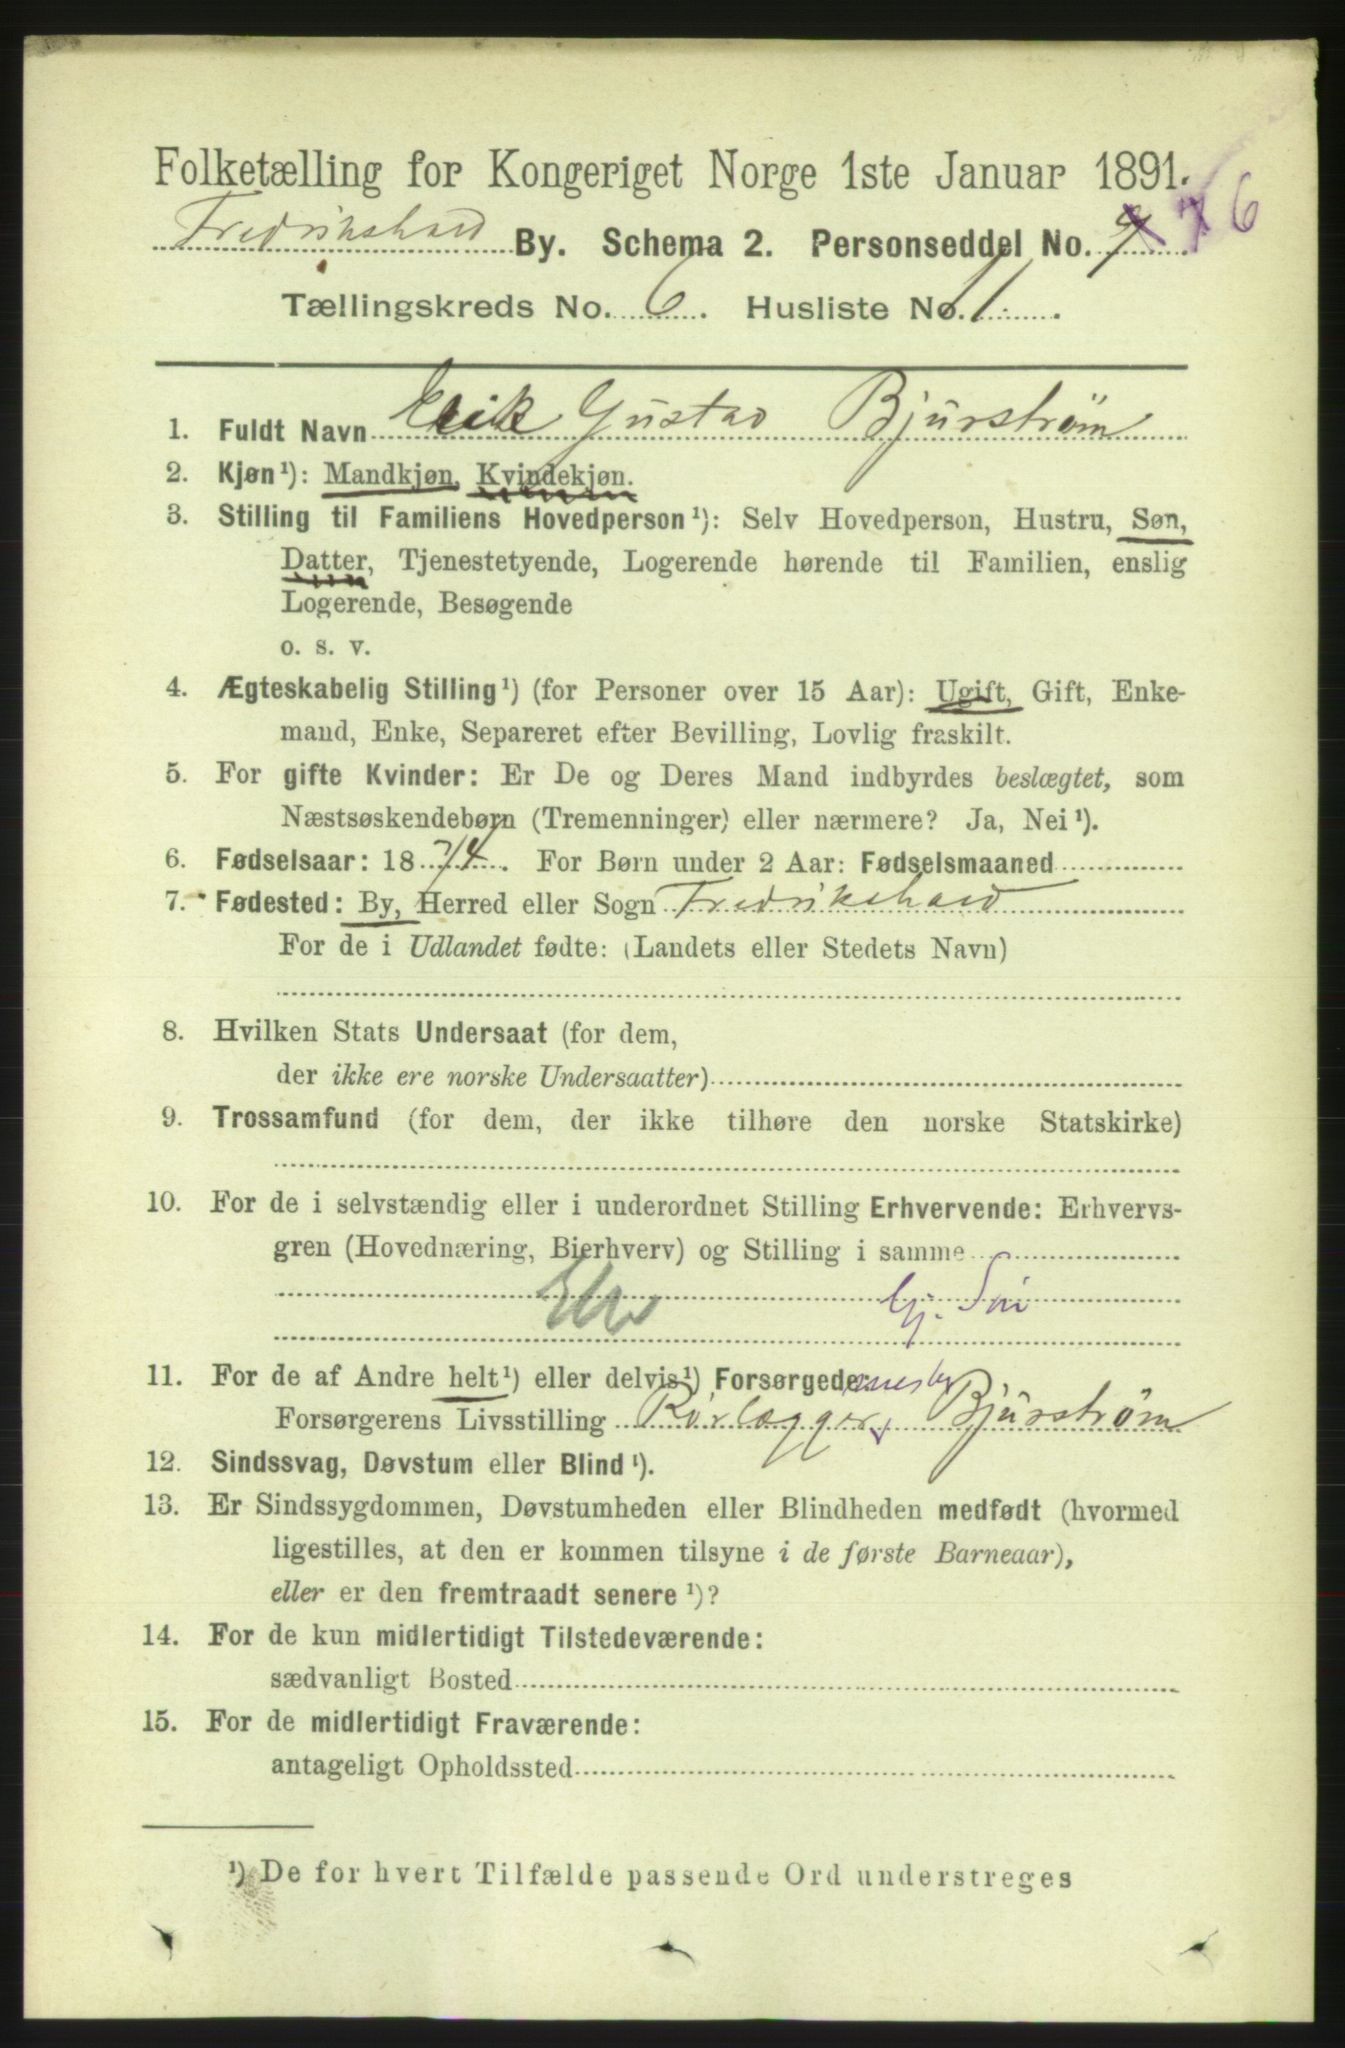 Folketælling for Kongeriget Norge 1ste Januar 1891.
Fredrikshald By. Schema 2. Personseddel No. 6
Tællingskreds No. 6. Husliste No. 1.
1. Fuldt Navn Erik Gustav Bjurstrøm
2. Kjøn¹): Mandkjøn, Kvindekjøn.
3. Stilling til Familiens Hovedperson¹): Selv Hovedperson, Hustru, Søn,
Datter, Tjenestetyende, Logerende hørende til Familien, enslig
Logerende, Besøgende
o. s. v.
4. Ægteskabelig Stilling¹) (for Personer over 15 Aar): Ugift, Gift, Enke-
mand, Enke, Separeret efter Bevilling, Lovlig fraskilt.
5. For gifte Kvinder: Er De og Deres Mand indbyrdes beslægtet, som
Næstsøskendebørn (Tremenninger) eller nærmere? Ja, Nei¹).
6. Fødselsaar: 1874. For Børn under 2 Aar: Fødselsmaaned
7. Fødested: By, Herred eller Sogn Fredrikshald
For de i Udlandet fødte: (Landets eller Stedets Navn)
8. Hvilken Stats Undersaat (for dem,
der ikke ere norske Undersaatter)
9. Trossamfund (for dem, der ikke tilhøre den norske Statskirke)
10. For de i selvstændig eller i underordnet Stilling Erhvervende: Erhvervs-
gren (Hovednæring, Bierhverv) og Stilling i samme
11. For de af Andre helt¹) eller delvis¹) Forsørgede:
Forsørgerens Livsstilling Rørlægger Bjurstrøm
12. Sindssvag, Døvstum eller Blind¹).
13. Er Sindssygdommen, Døvstumheden eller Blindheden medfødt (hvormed
ligestilles, at den er kommen tilsyne i de første Barneaar),
eller er den fremtraadt senere¹)?
14. For de kun midlertidigt Tilstedeværende:
sædvanligt Bosted
15. For de midlertidigt Fraværende:
antageligt Opholdssted
¹) De for hvert Tilfælde passende Ord understreges